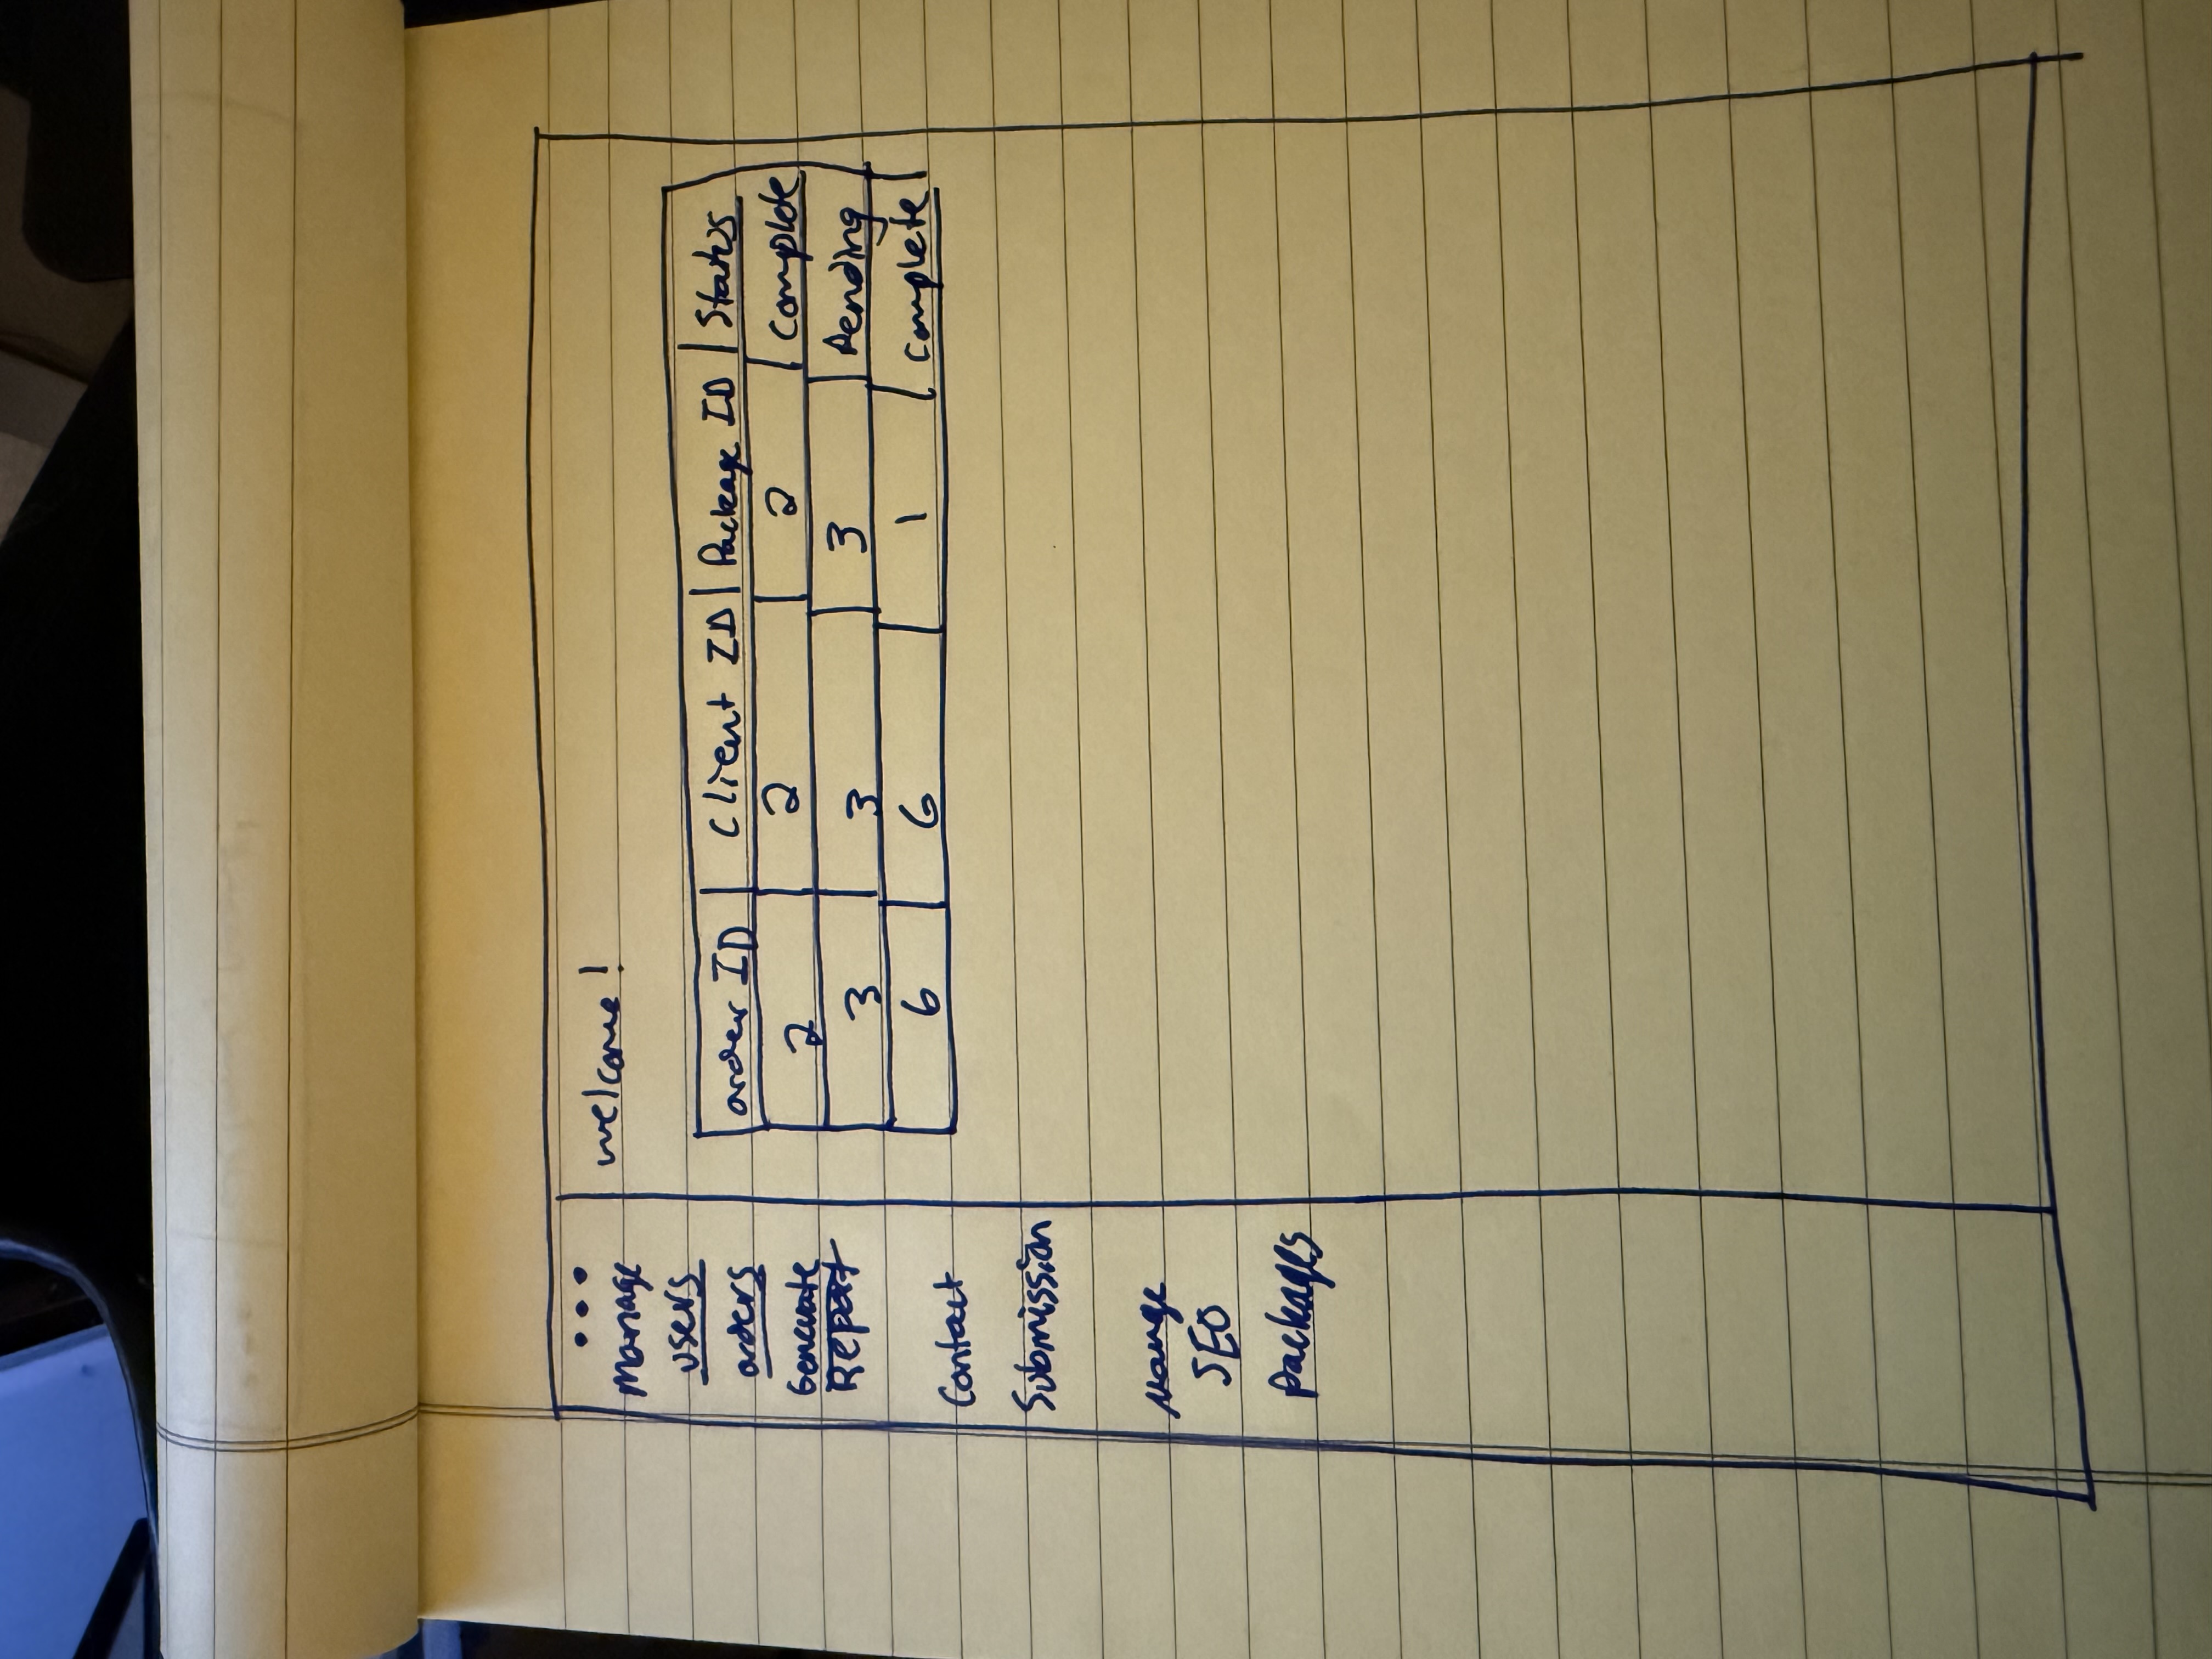 •••
Manage
users
orders
Generate
Report
Contact
Submission
Mange
SEO
Packages
welcome!
order ID Client ID Package ID Status
2 2 2 Complete
3 3 3 Pending
6 6 1 Complete